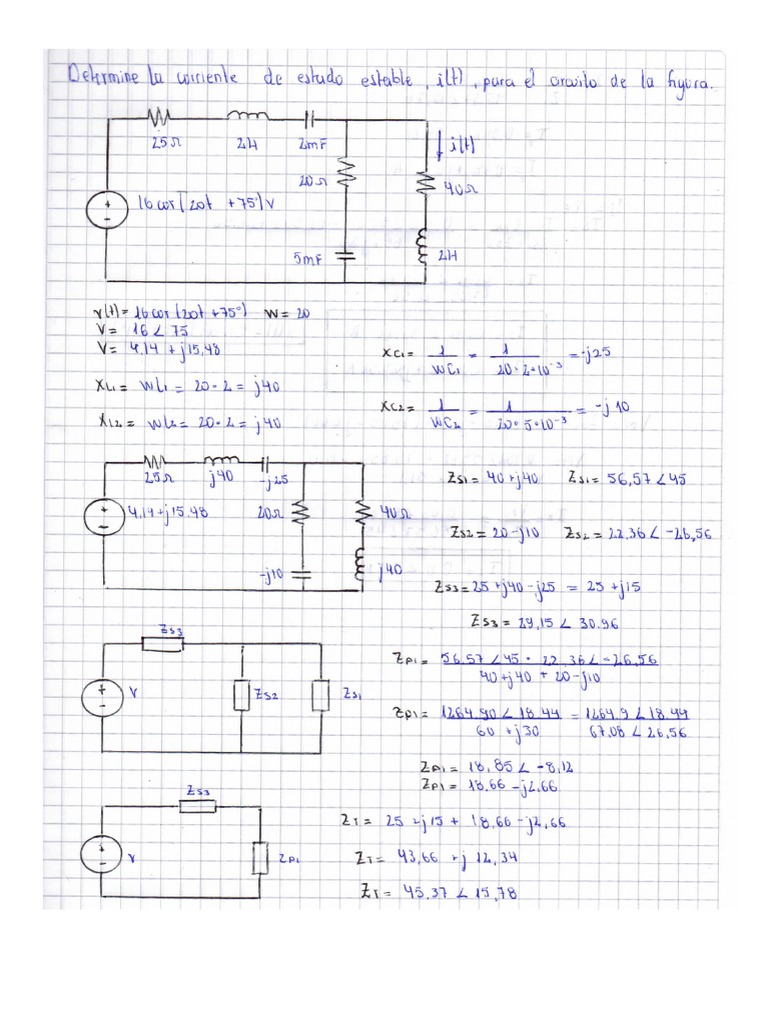 Determine la corriente de estado estable, i(t), para el circuito de la figura.
25Ω 2H 2mF
i(t)
20Ω
40Ω
16 cos(20t + 75°) V
+
-
5mF
2H
v(t) = 16 cos (20t + 75°) W = 20
V = 16 ∠ 75
V = 4.14 + j15.48
XL1 = WL1 = 20 · 2 = j40
XL2 = WL2 = 20 · 2 = j40
XC1 = 1/WC1 = 1/20·2·10⁻³ = -j25
XC2 = 1/WC2 = 1/20·5·10⁻³ = -j10
25Ω j40 -j25
4.14 + j15.48
+
-
20Ω
40Ω
-j10
j40
ZS1 = 40 + j40 ZS1 = 56,57 ∠ 45
ZS2 = 20 - j10 ZS2 = 22,36 ∠ -26,56
ZS3 = 25 + j40 - j25 = 25 + j15
ZS3 = 29,15 ∠ 30.96
ZS3
+
-
V
ZS2
ZS1
ZP1 = 56.57 ∠ 45 · 22,36 ∠ -26,56 / 40 + j40 + 20 - j10
ZP1 = 1264,90 ∠ 18.44 / 60 + j30 = 1264.9 ∠ 18.44 / 67.08 ∠ 26,56
ZP1 = 18,85 ∠ -8,12
ZP1 = 18,66 - j2,66
ZS3
+
-
V
ZP1
ZT = 25 + j15 + 18,66 - j2,66
ZT = 43,66 + j 12,34
ZT = 45,37 ∠ 15,78